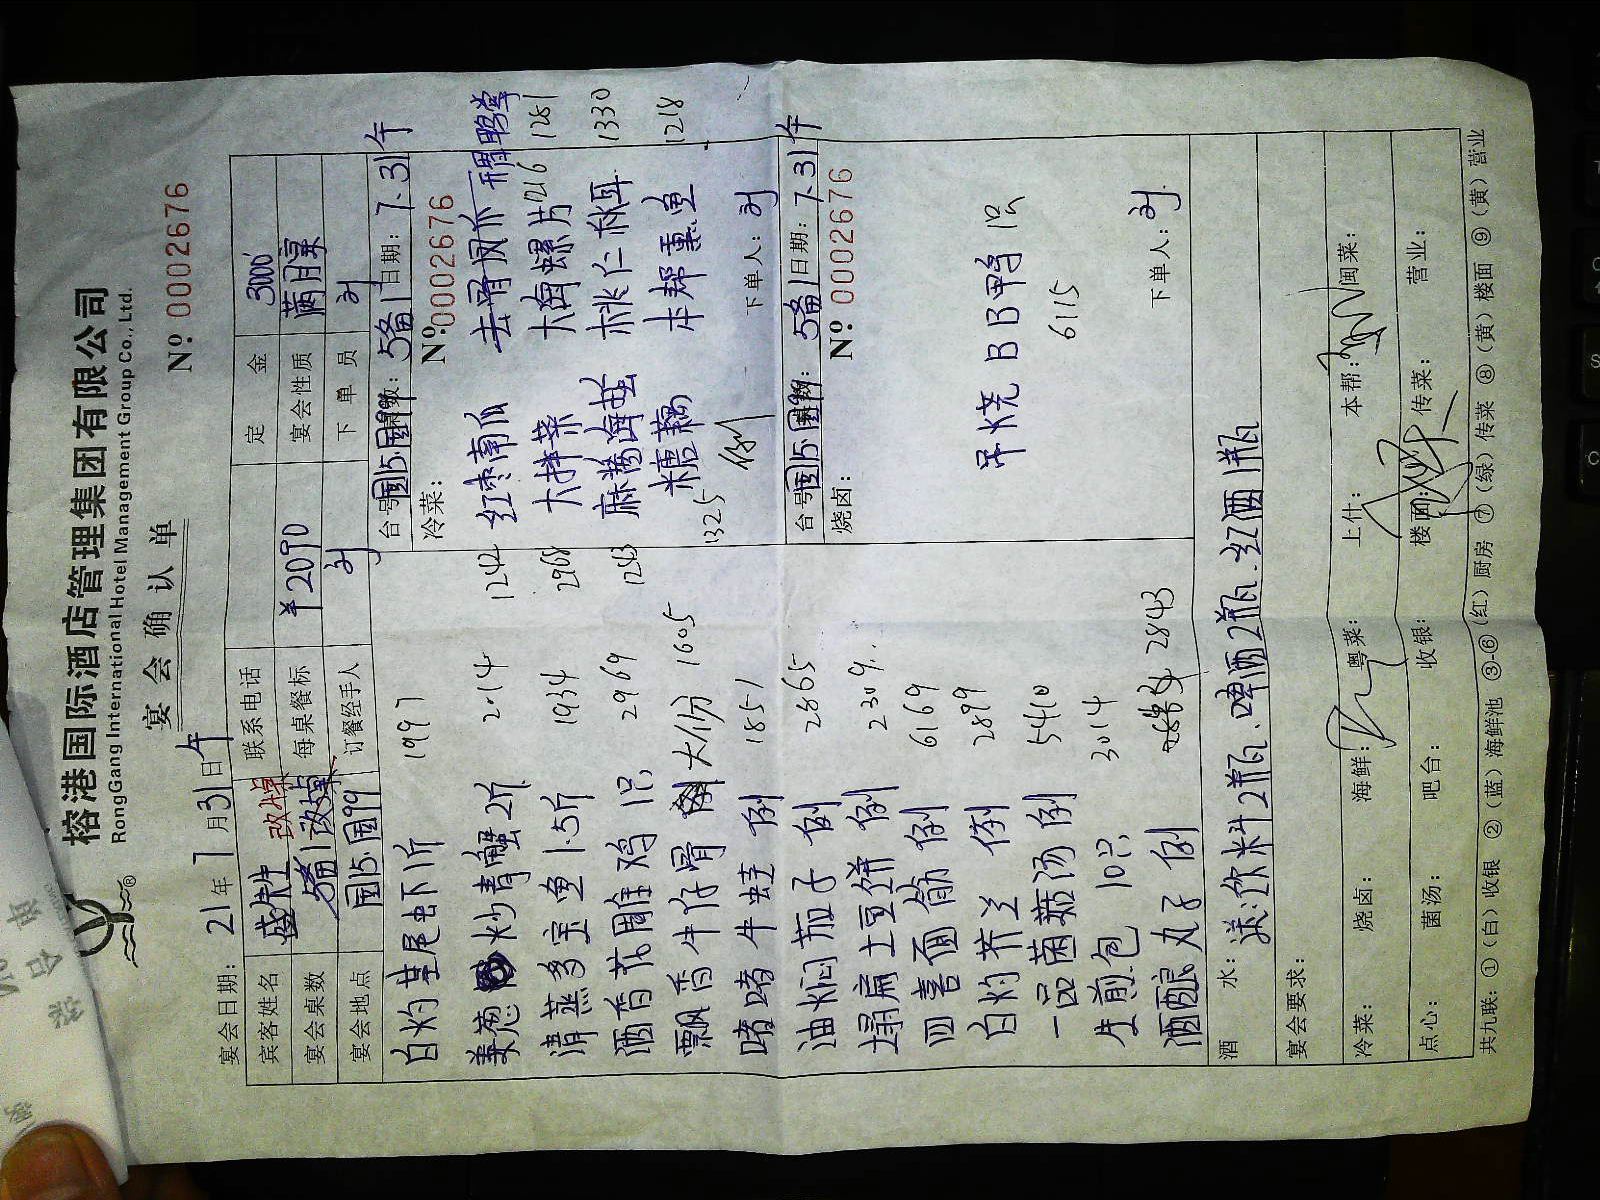 榕港国际酒店管理集团有限公司
RongGang International Hotel Management Group Co., Ltd.
宴会确认单
№ 0002676
宴会日期: 21年7月31日午
宾客姓名 盛 改婚 联系电话 定金 3000
宴会桌数 5备1 改婚 每桌餐标 ¥2090 宴会性质 满月
宴会地点 国15.国99 订餐经手人 刘 下单员 刘
白灼基尾虾1斤 1997
姜葱炒青蟹2斤 2014
清蒸多宝鱼1.5斤 1934
酒香花雕鸡1只 2969
飘香牛仔骨 大份 1605
啫啫牛蛙 例 1851
油焖茄子 例 2865
塌扁土豆饼 例 2309
四喜面筋 例 6169
白灼芥兰 例 2899
一品菌菇汤 例 5410
生煎包 10只 3014
酒酿丸子 例 2843
台号 国15.国99 桌数: 5备1 日期: 7.31午
冷菜: № 0002676
1242 红枣南瓜 去骨凤爪 鸭掌
2968 大拌菜 大海螺片 1216 1281
1263 麻酱海蜇 桃仁秋耳 1330
1325 糖藕 本帮熏鱼 1218
例
下单人: 刘
台号 国15.国99 桌数: 5备1 日期: 7.31午
烧卤: № 0002676
吊烧BB鸭 1只
6115
下单人: 刘
酒水: 送:饮料2瓶、啤酒2瓶、红酒1瓶
宴会要求:
冷菜: 烧卤: 海鲜: 粤菜: 上什: 本帮: 闽菜:
点心: 菌汤: 吧台: 收银: 楼面: 传菜: 营业:
共九联: ①(白)收银 ②(蓝)海鲜池 ③-⑥(红)厨房 ⑦(绿)传菜 ⑧(黄)楼面 ⑨(黄)营业